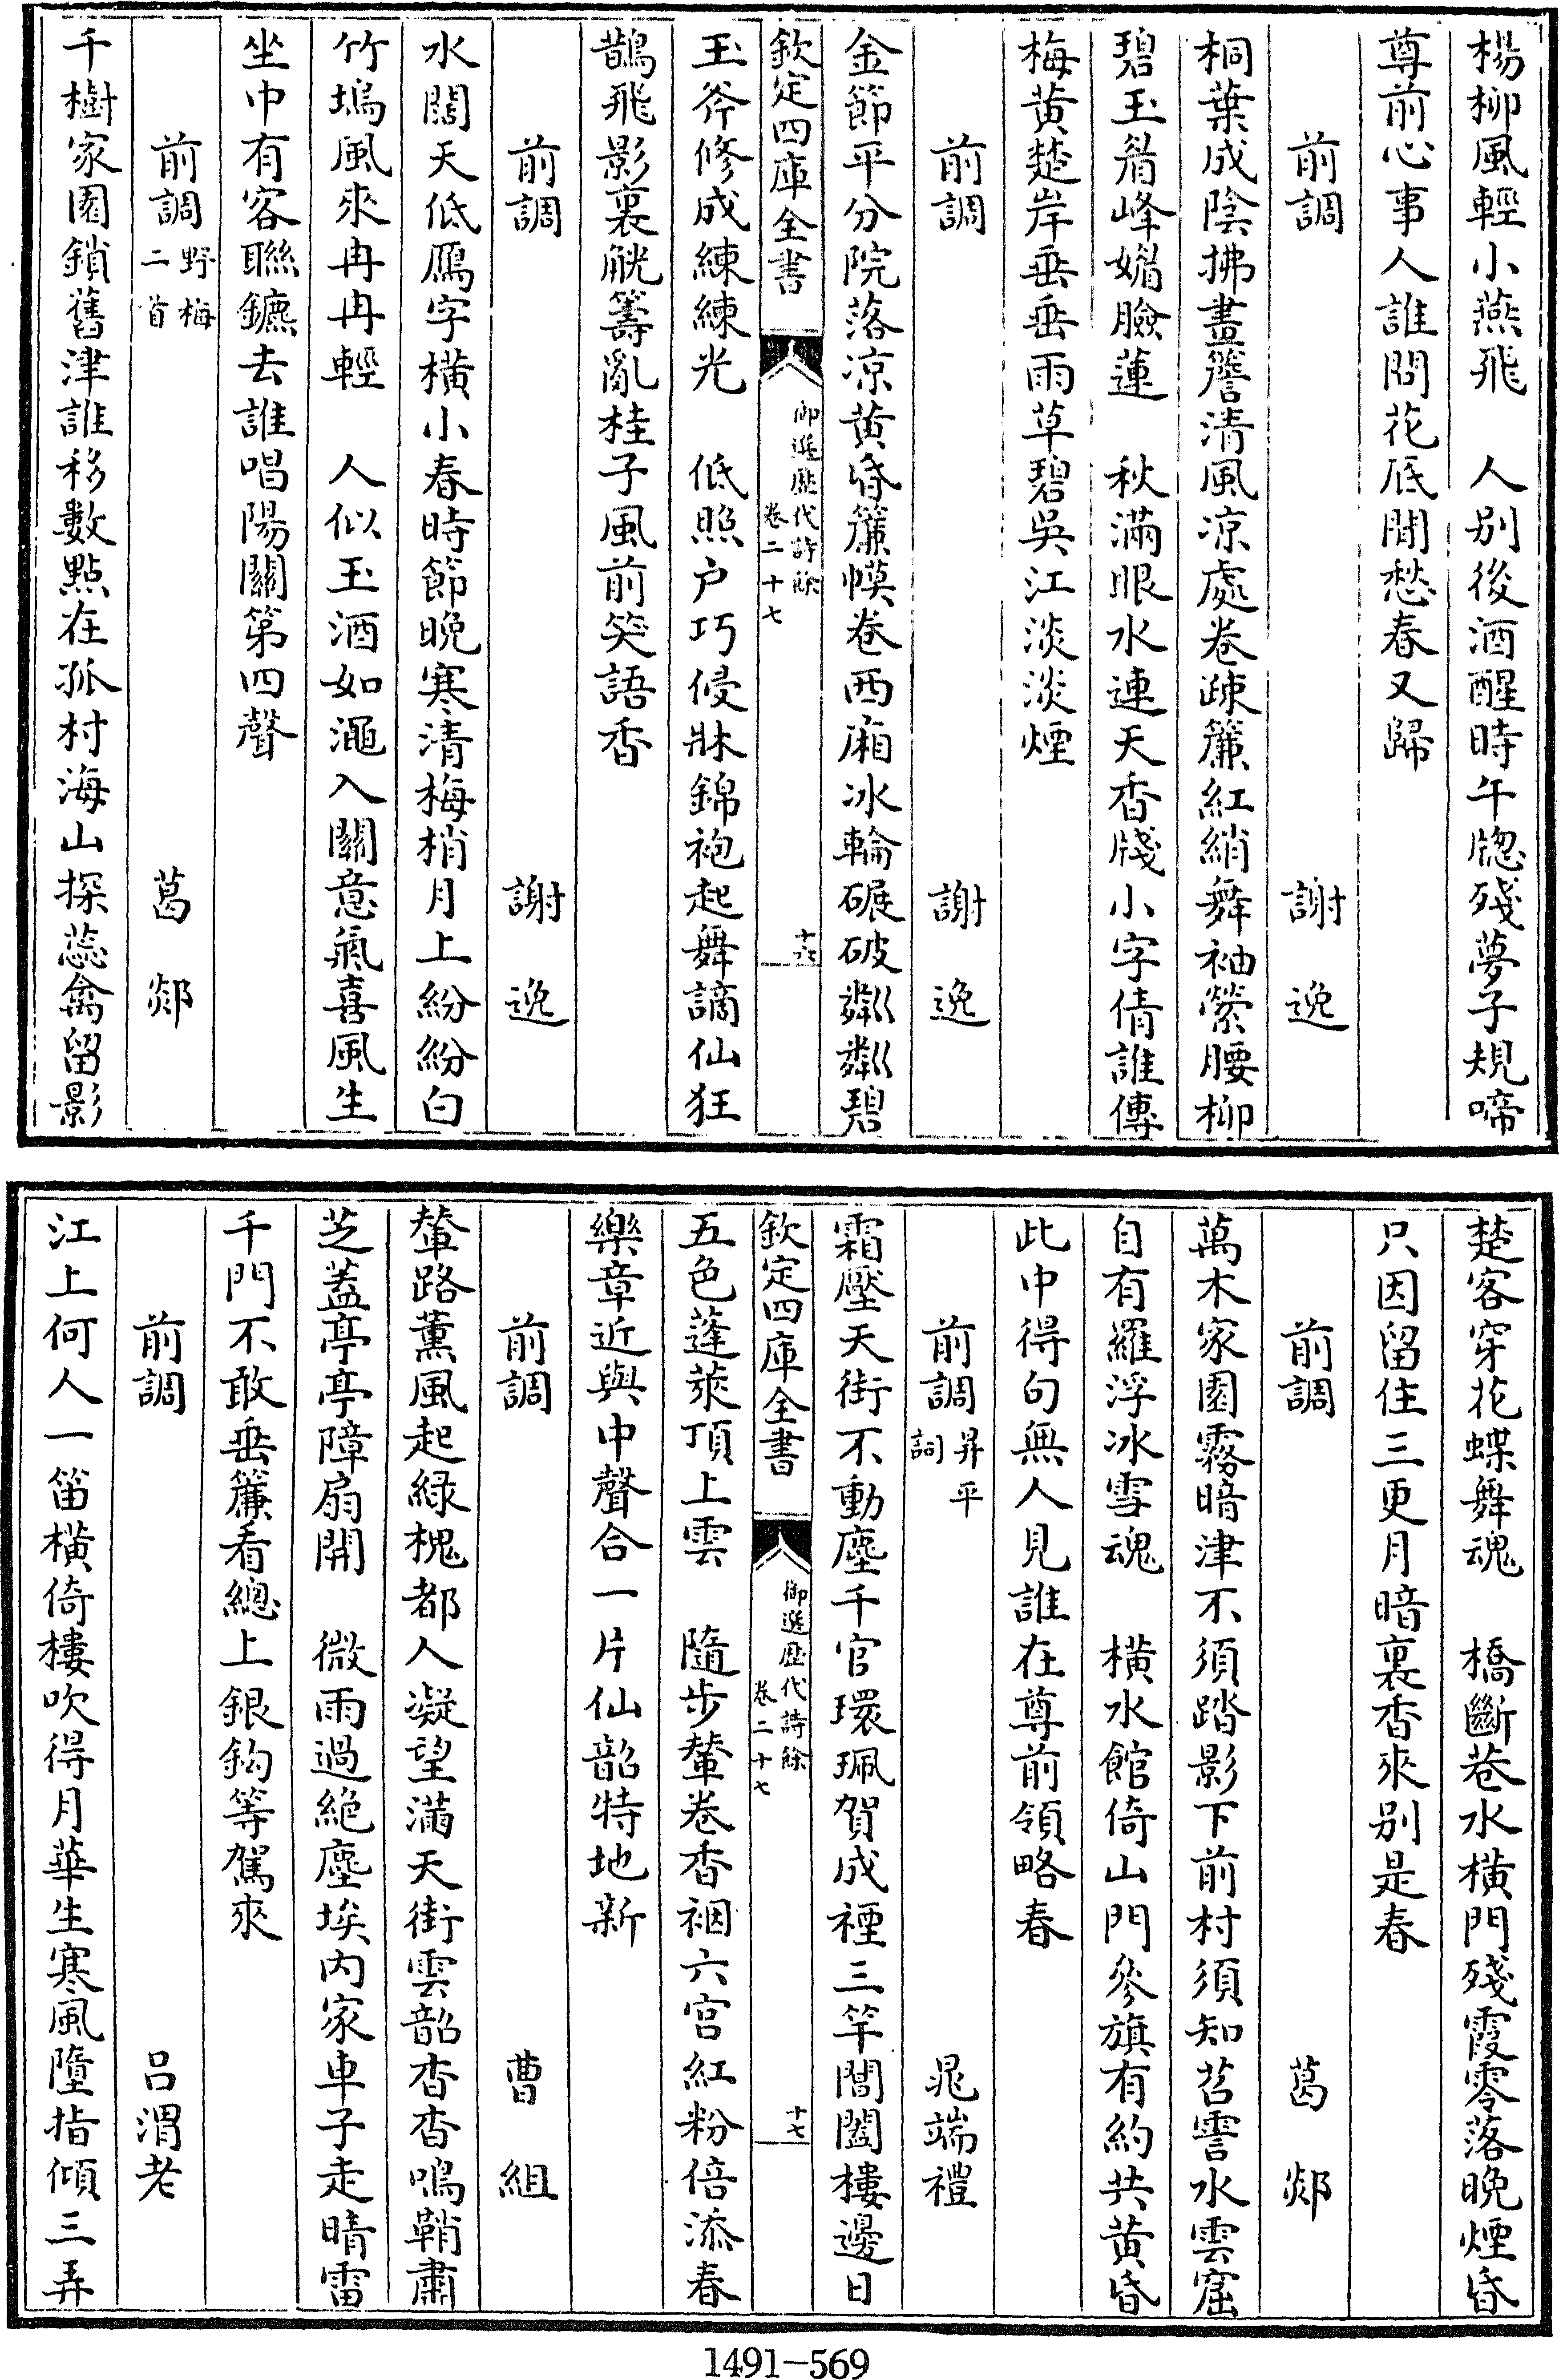 楊柳風輕小燕飛　人别後酒醒時午牕殘夢子規啼
尊前心事人誰問花底閒愁春又歸
前調　謝逸
桐葉成陰拂畫簷清風凉處卷疎簾紅綃舞袖縈腰柳
碧玉眉峰媚臉蓮　秋滿眼水連天香牋小字倩誰傳
梅黄楚岸垂垂雨草碧吳江淡淡煙
前調　謝逸
金節平分院落凉黄昏簾幙卷西廂冰輪碾破粼粼碧
欽定四庫全書　御選歷代詩餘　卷二十七　十六
玉斧修成練練光　低照户巧侵牀錦袍起舞謫仙狂
鵲飛影裏觥籌亂桂子風前笑語香
前調　謝逸
水闊天低鴈字横小春時節晚寒清梅梢月上紛紛白
竹塢風來冉冉輕　人似玉酒如澠入關意氣喜風生
坐中有客聯鑣去誰唱陽關第四聲
前調野梅二首　葛郯
千樹家園鎖舊津誰移數點在孤村海山探蕊禽留影
楚客穿花蝶舞魂　橋斷巷水横門殘霞零落晚煙昏
只因留住三更月暗裏香來别是春
前調　葛郯
萬木家園霧暗津不須踏影下前村須知苕霅水雲窟
自有羅浮冰雪魂　横水館倚山門參旗有約共黄昏
此中得句無人見誰在尊前領略春
前調昇平詞　晁端禮
霜壓天街不動塵千官環珮賀成禋三竿閶闔樓邊日
欽定四庫全書　御選歷代詩餘　卷二十七　十七
五色蓬萊頂上雲　隨步輦卷香裀六宫紅粉倍添春
樂章近與中聲合一片仙韶特地新
前調　曹組
輦路薰風起緑槐都人凝望滿天街雲韶杳杳鳴鞘肅
芝蓋亭亭障扇開　微雨過絶塵埃内家車子走晴雷
千門不敢垂簾看總上銀鈎等駕來
前調　吕渭老
江上何人一笛横倚樓吹得月華生寒風墮指傾三弄
1491-569